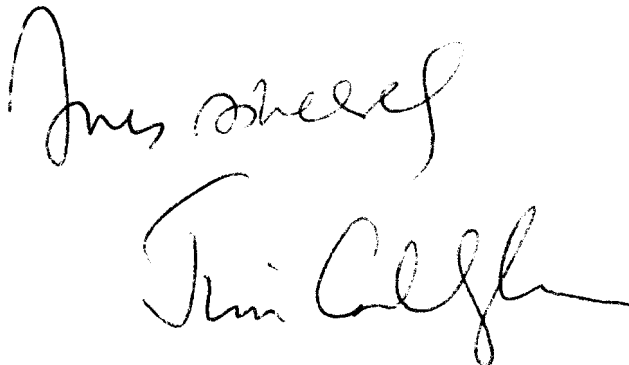 Yours sincerely
Jim Callaghan